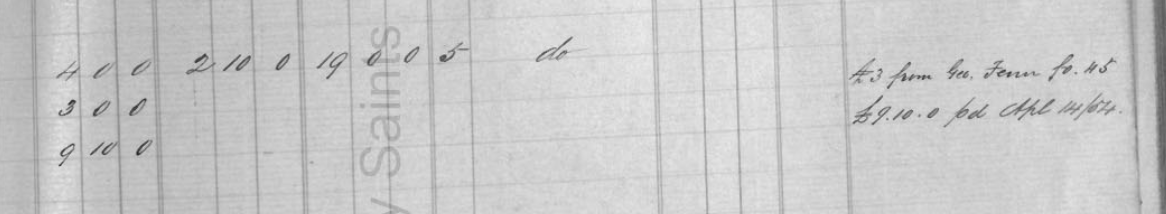 4 0 0 2 10 0 19 0 0 5 do
£3 from Geo. Fenn fo. 45
3 0 0
£9.10.0 pd Apl 14/54.
9 10 0
y Saints